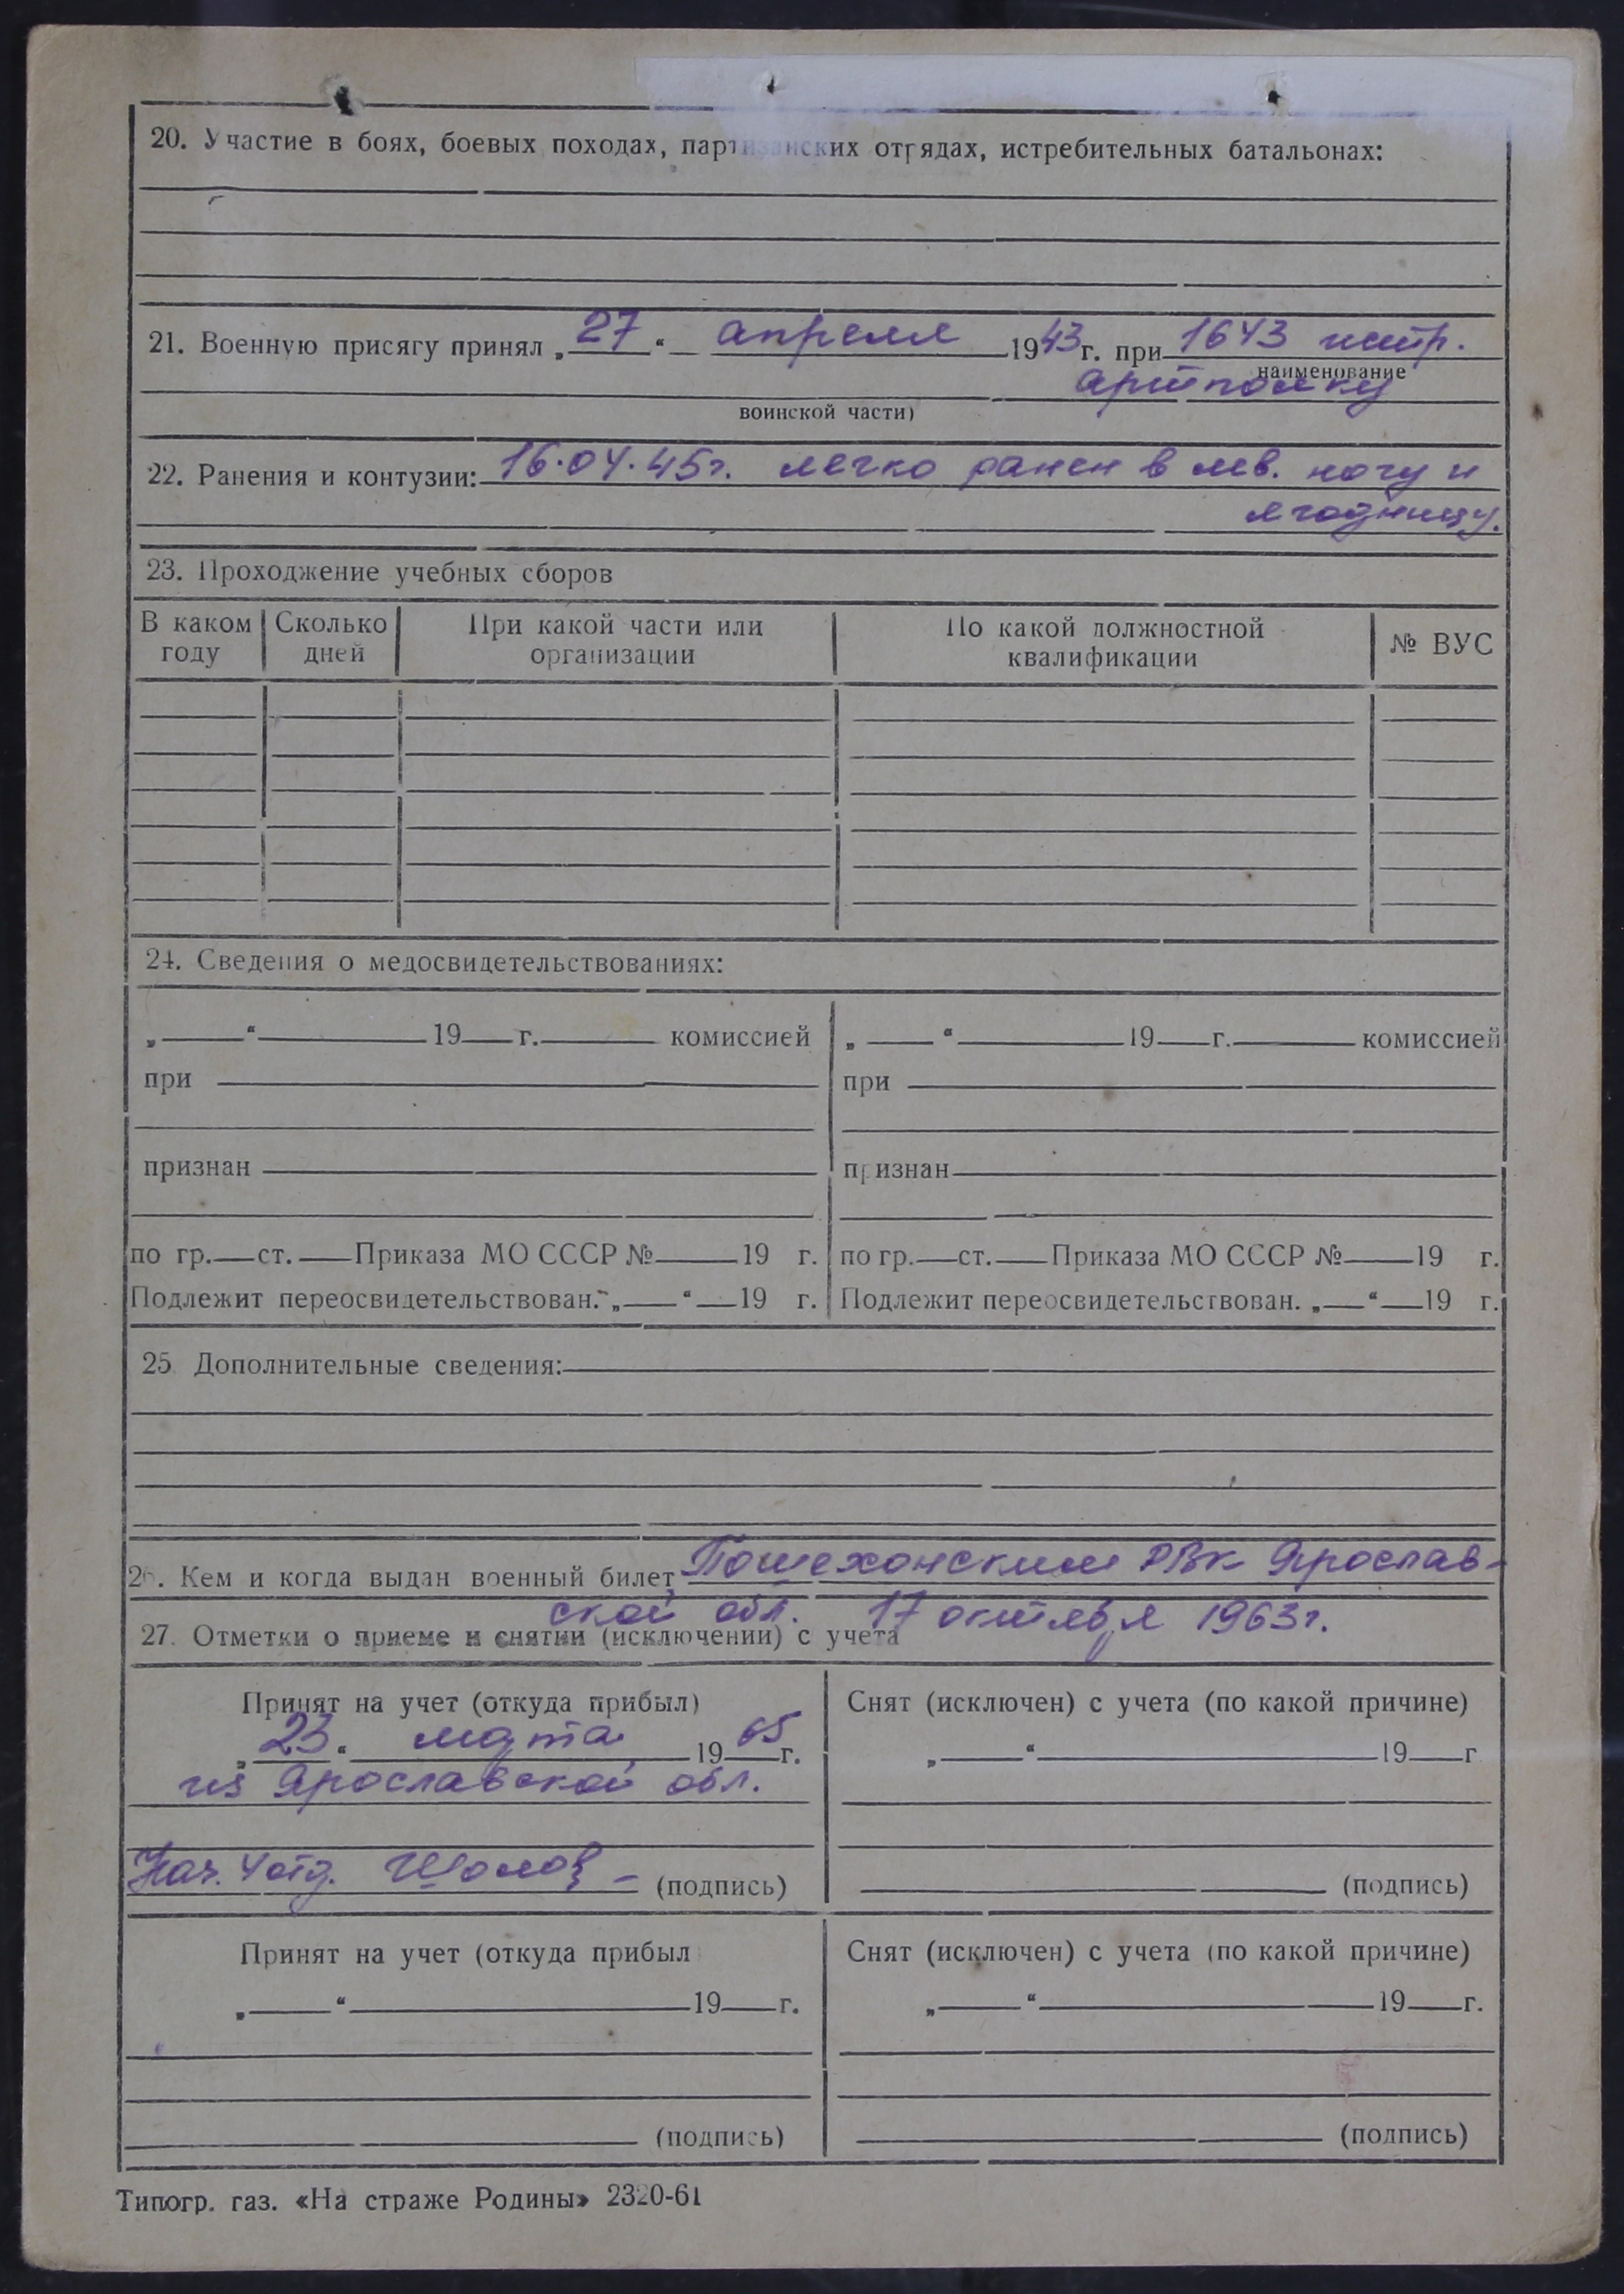 20. Участие в боях, боевых походах, партизанских отрядах, истребительных батальонах:
21. Военную присягу принял „27“ апреля 1943 г. при 1643 истр.
наименование
артполку
воинской части)
22. Ранения и контузии: 16.04.45г. легко ранен в лев. ногу и
ягодницу.
23. Проходжение учебных сборов
В каком году Сколько дней При какой части или организации По какой должностной квалификации № ВУС
24. Сведения о медосвидетельствованиях:
„ “ 19 г. комиссией „ “ 19 г. комиссией
при при
признан признан
по гр. ст. Приказа МО СССР № 19 г. по гр. ст. Приказа МО СССР № 19 г.
Подлежит переосвидетельствован. „ “ 19 г. Подлежит переосвидетельствован. „ “ 19 г.
25 Дополнительные сведения:
26. Кем и когда выдан военный билет Пошехонским РВК Ярослав-
ской обл. 17 октября 1963г.
27. Отметки о приеме и снятии (исключении) с учета
Принят на учет (откуда прибыл) Снят (исключен) с учета (по какой причине)
„23“ марта 1965 г. „ “ 19 г
из Ярославской обл.
Нач. 4 отд. (подпись) (подпись)
Принят на учет (откуда прибыл Снят (исключен) с учета (по какой причине)
„ “ 19 г. „ “ 19 г.
(подпись) (подпись)
Типогр. газ. «На страже Родины» 2320-61